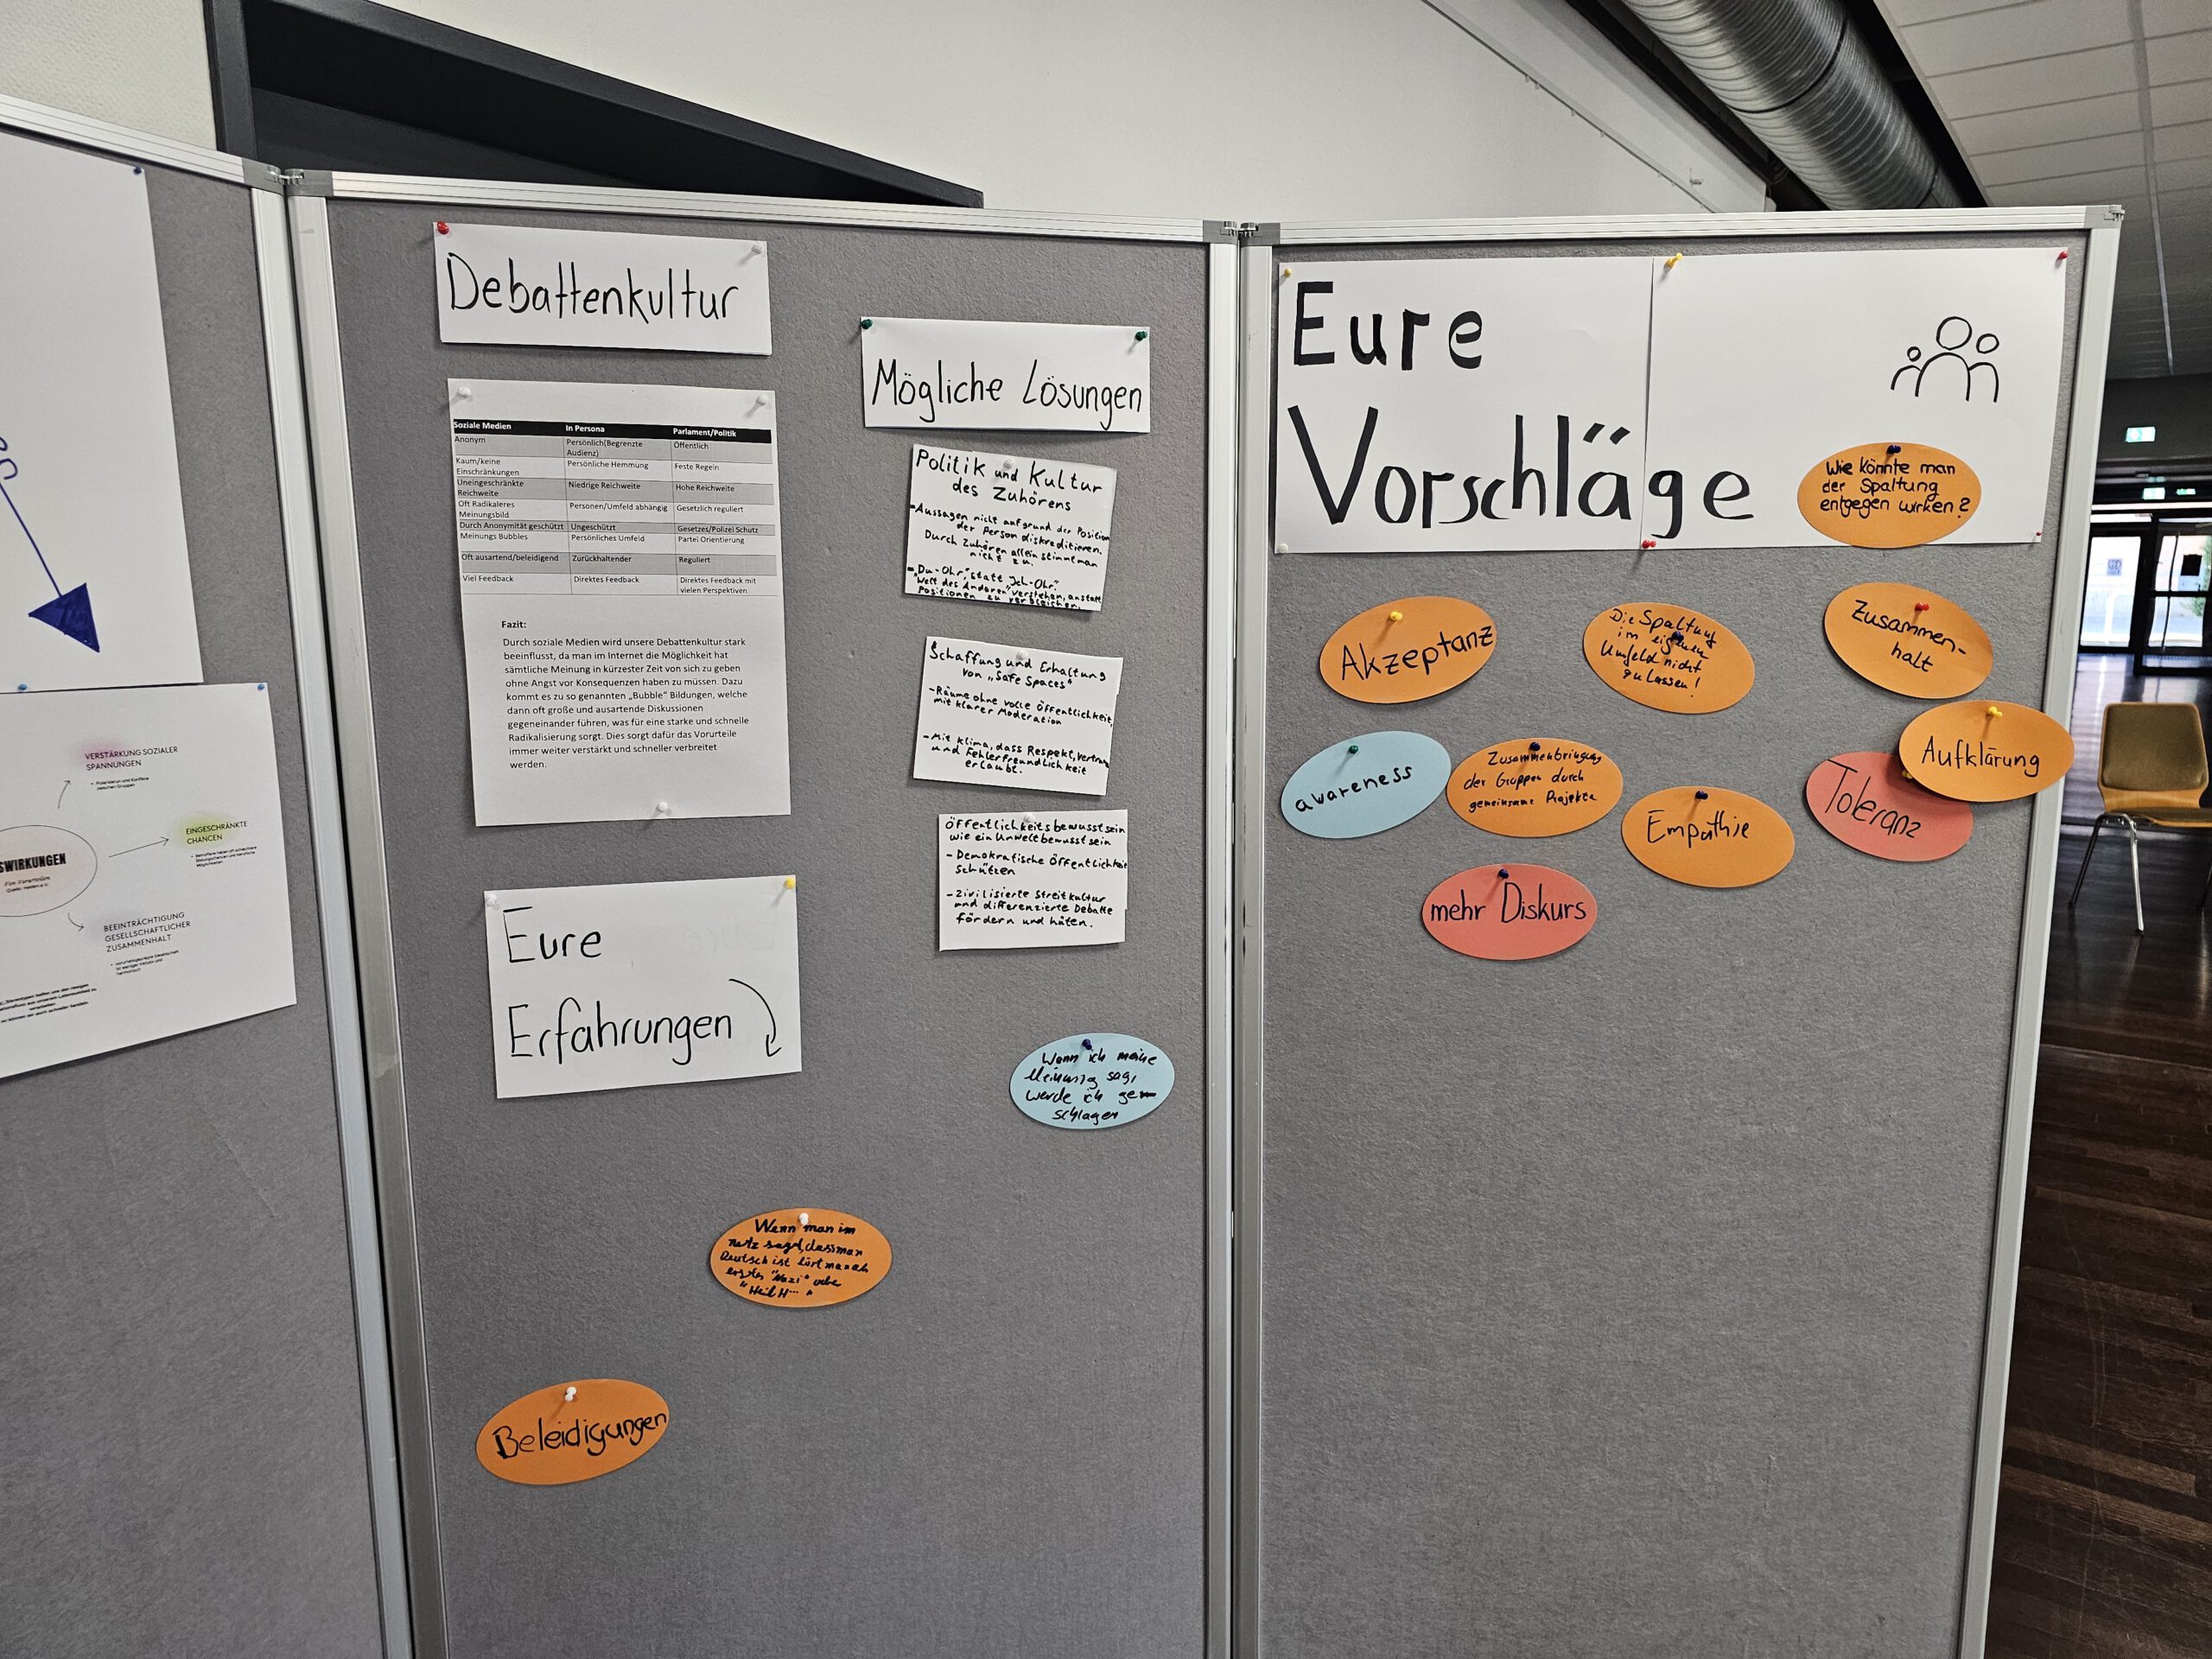 VERSTÄRKUNG SOZIALER
SPANNUNGEN
EINGESCHRÄNKTE
CHANCEN
SWIRKUNGEN
BEEINTRÄCHTIGUNG
GESELLSCHAFTLICHER
ZUSAMMENHALT
Debattenkultur
Soziale Medien In Persona Parlament/Politik
Anonym Persönlich(Begrenzte Audienz) Öffentlich
Kaum/keine Einschränkungen Persönliche Hemmung Feste Regeln
Uneingeschränkte Reichweite Niedrige Reichweite Hohe Reichweite
Oft Radikaleres Meinungsbild Personen/Umfeld abhängig Gesetzlich reguliert
Durch Anonymität geschützt Ungeschützt Gesetzes/Polizei Schutz
Meinungs Bubbles Persönliches Umfeld Partei Orientierung
Oft ausartend/beleidigend Zurückhaltender Reguliert
Viel Feedback Direktes Feedback Direktes Feedback mit vielen Perspektiven
Fazit:
Durch soziale Medien wird unsere Debattenkultur stark
beeinflusst, da man im Internet die Möglichkeit hat
sämtliche Meinung in kürzester Zeit von sich zu geben
ohne Angst vor Konsequenzen haben zu müssen. Dazu
kommt es zu so genannten „Bubble“ Bildungen, welche
dann oft große und ausartende Diskussionen
gegeneinander führen, was für eine starke und schnelle
Radikalisierung sorgt. Dies sorgt dafür das Vorurteile
immer weiter verstärkt und schneller verbreitet
werden.
Eure
Erfahrungen
Mögliche Lösungen
Politik und Kultur
des Zuhörens
-Aussagen nicht aufgrund der Position
der Person diskreditieren.
Durch Zuhören allein stimmt man
nicht zu.
-„Du-Ohr“, statt „Ich-Ohr“.
"Welt des Anderen" verstehen, anstatt
Positionen zu vergleichen.
Schaffung und Erhaltung
von „Safe Spaces“
-Räume ohne volle Öffentlichkeit,
mit klarer Moderation
-Mit Klima, dass Respekt, Vertrau
und Fehlerfreundlichkeit
erlaubt.
Öffentlichkeitsbewusstsein
wie ein Umweltbewusstsein
- Demokratische Öffentlichkeit
schützen
-Zivilisierte Streitkultur
und differenzierte Debatte
fördern und hüten.
Wenn ich meine
Meinung sag,
werde ich ge
schlagen
Wenn man im
netz sagt, dass man
Deutsch ist hört man als
erstes "Nazi" oder
"Heil H..."
Beleidigungen
Eure
Vorschläge
Wie könnte man
der Spaltung
entgegen wirken?
Akzeptanz
Die Spaltung
im eigenen
Umfeld nicht
zu lassen!
Zusammen-
halt
awareness
Zusammenbringung
der Gruppen durch
gemeinsame Projekte
Empathie
Toleranz
Aufklärung
mehr Diskurs